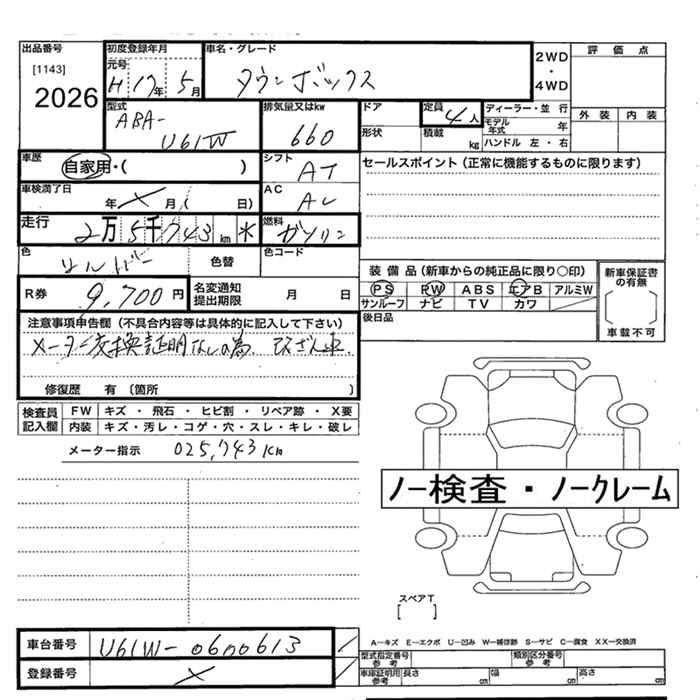 出品番号 初度登録年月 車名・グレード 2WD・4WD 評価点
[1143] 元号
2026 H 17年 5月 タウンボックス
型式 排気量又はkw ドア 定員 4人 ディーラー・並行 外装 内装
ABA- 形状 積載 kg モデル年式 年
U61W 660 ハンドル 左・右
車歴 自家用・( ) シフト AT セールスポイント（正常に機能するものに限ります）
車検満了日 年 X 月( 日) AC AC
走行 2万5千743km * 燃料 ガソリン
色 シルバー 色替 色コード
装備品（新車からの純正品に限り○印） 新車保証書の有無
R券 9,700円 名変通知提出期限 月 日 PS PW ABS エアB アルミW
サンルーフ ナビ TV カワ
[ ]
車載不可
後日品
注意事項申告欄（不具合内容等は具体的に記入して下さい）
メーター交換証明なしの為、改ざん車。
修復歴 有〔箇所 〕
検査員記入欄 FW キズ・飛石・ヒビ割・リペア跡・X要
内装 キズ・汚レ・コゲ・穴・スレ・キレ・破レ
メーター指示 025,743km
ノー検査・ノークレーム
スペアT
[ ]
車台番号 U61W-0600613
登録番号 X
A－キズ E－エクボ U－凹み W－補修跡 S－サビ C－腐食 XX－交換済
型式指定番号参考 類別区分番号参考
車庫証明用参考 長さ cm 幅 cm 高さ cm